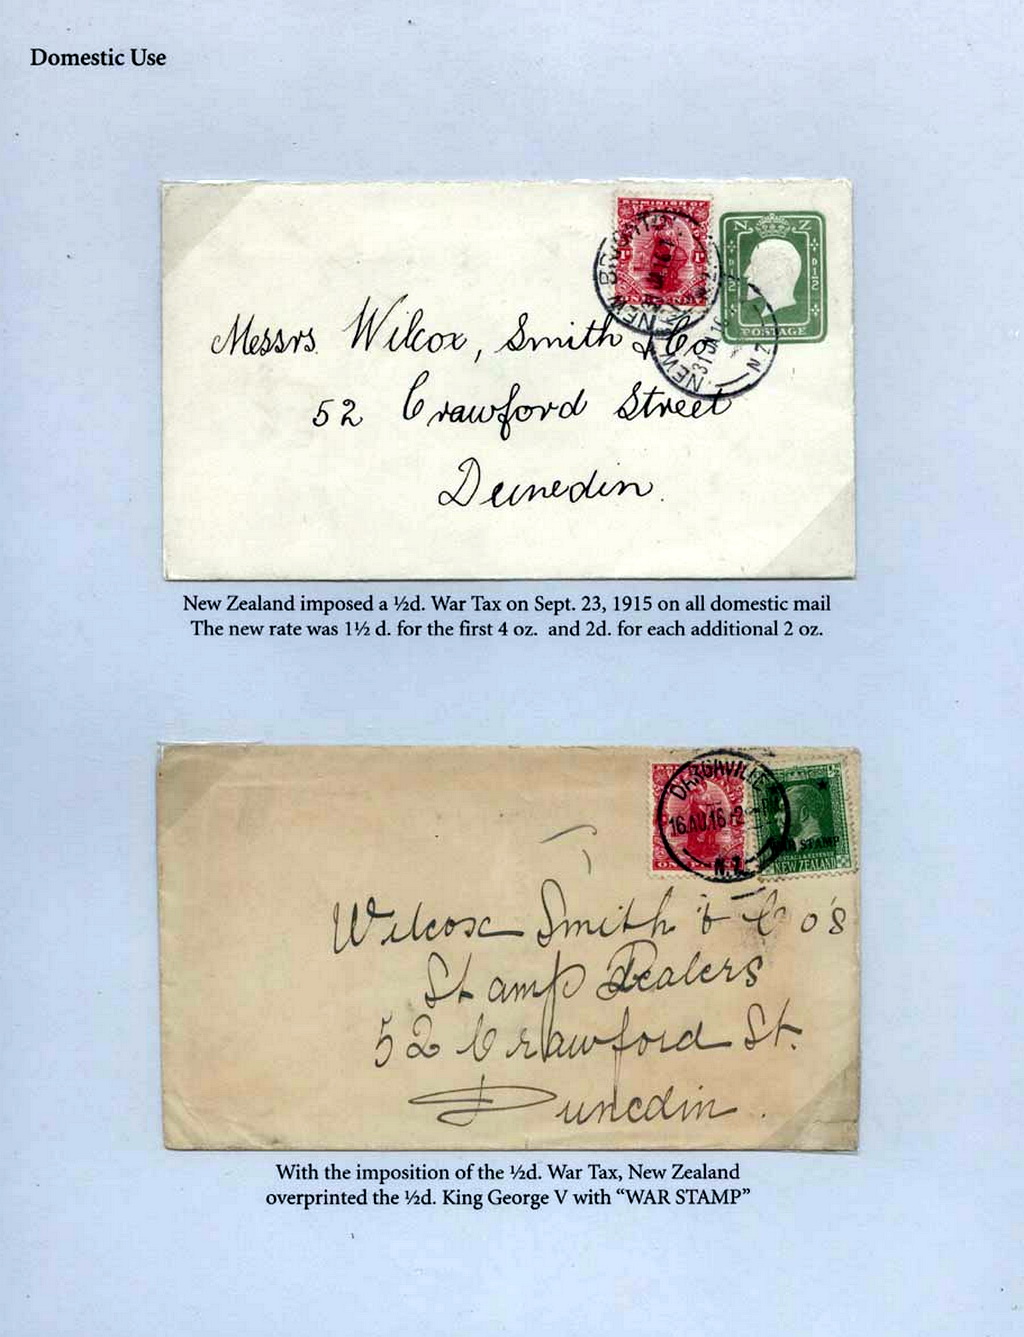 Domestic Use
DOMINION OF
1D 1D
ONE PENNY
N Z
½ D ½ D
POSTAGE
NEW BRIGHTON
31 JA 16
N.Z
Messrs. Wilcox, Smith & Co.
52 Crawford Street
Dunedin.
New Zealand imposed a ½d. War Tax on Sept. 23, 1915 on all domestic mail
The new rate was 1½ d. for the first 4 oz. and 2d. for each additional 2 oz.
DARGAVILLE
16 AU 16
N.Z.
WAR STAMP
NEW ZEALAND
Wilcox Smith & Co's
Stamp Dealers
52 Crawford St.
Dunedin.
With the imposition of the ½d. War Tax, New Zealand
overprinted the ½d. King George V with “WAR STAMP”